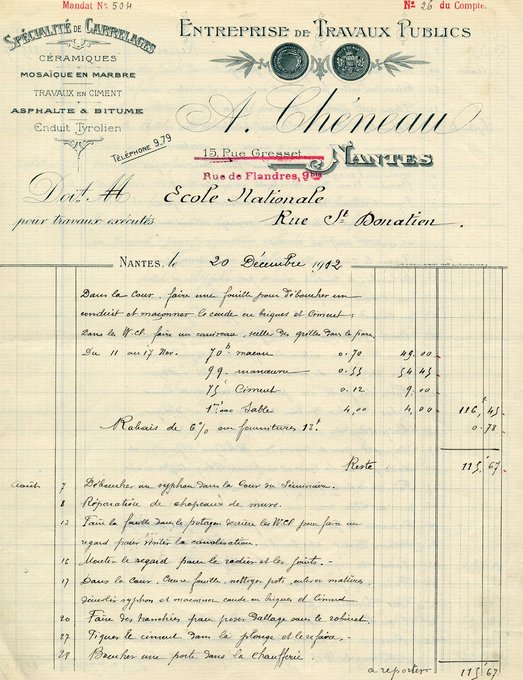 Mandat No 504
No 26 du Compte.
SPÉCIALITÉ DE CARRELAGES
CÉRAMIQUES
MOSAÏQUE EN MARBRE
TRAVAUX EN CIMENT
ASPHALTE & BITUME
Enduit Tyrolien
TÉLÉPHONE 9.79
ENTREPRISE DE TRAVAUX PUBLICS
A. Chéneau
15, Rue Gresset
NANTES
Rue de Flandres, 9bis
Doit M Ecole Nationale
pour travaux exécutés Rue St Donatien.
NANTES, le 20 Décembre 1912
Dans la Cour, faire une fouille pour déboucher un
conduit et maçonner le coude en briques et Ciment;
Dans les W.Cl. faire un caniveau, sceller des grilles dans le
Du 11 au 17 Nov. 70h macon 0.70 49.00
99 manœuvre 0.55 54.45
75k Ciment 0.12 9.00
Sable 4,00 4,00 116,45
Rabais de 6% sur fournitures 0.78
Reste 115,67
7 Déboucher un syphon dans la Cour du
8 Réparation de chapeaux de murs.
13 Faire la fouille dans le potager derrière les W.Cl pour faire un
regard pour visiter la canalisation.
16 Monter le regard faire le radier et les joints.-
17 Dans la Cour, fouille, nettoyer pots, enlever matières
syphon et maçonner coude en briques et Ciment
20 Faire des tranchées pour poser dallage sous le robinet.
27 Piquer le ciment dans la plonge et le refaire.-
28 Boucher une porte dans la chaufferie.
a reporter 115,67